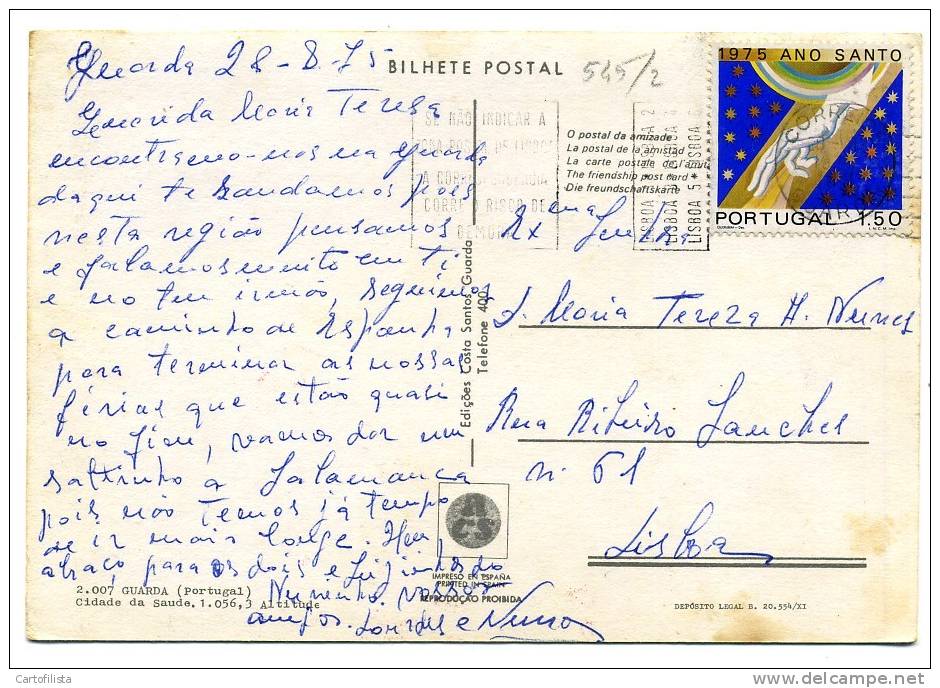 Guarda 28-8-75
BILHETE POSTAL
545/2
Querida Maria Tereza
encontramo-nos na Guarda
daqui te saudamos pois
nesta região pensamos
e falamos muito em ti
e no teu irmão, seguimos
a caminho de Espanha
para terminar as nossas
férias que estão quasi
no fim, vamos dar um
saltinho a Salamanca
pois não temos já tempo
de ir mais longe. Um
abraço para os dois e
vossos
amigos. Lourdes e Nuno
2.007 GUARDA (Portugal)
Cidade da Saude. 1.056,3 Altitude
SE NÃO INDICAR A
ZONA POSTAL DE LISBOA
A CORRESPONDENCIA
CORRE O RISCO DE
DEMORA
Edições Costa Santos Guarda
Telefone 400
IMPRESO EN ESPAÑA
PRINTED IN SPAIN
REPRODUÇÃO PROIBIDA
O postal da amizade
La postal de la amistad
La carte postale de l'amit
The friendship post card
Die freundschaftskarte
LISBOA 2
LISBOA 4
LISBOA 5
1975 ANO SANTO
CORRE
PORTUGAL 1$50
Ex.ma Senhora
D. Maria Tereza A. Nunes
Rua Ribeiro Sanches
nº 61
Lisboa
DEPÓSITO LEGAL B. 20.554/XI
Cartofilista
delcampe.net